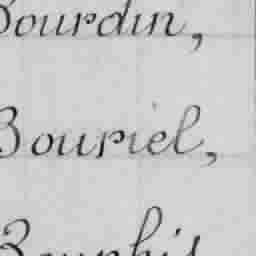 Bourdin,
Bouriel,